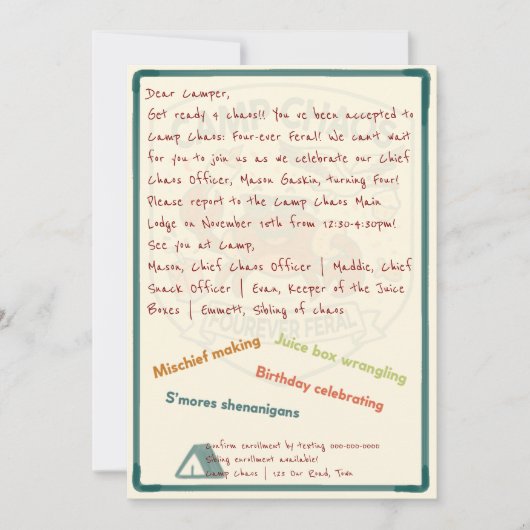 Dear Camper,
Get ready 4 chaos!! You ve been accepted to
Camp Chaos: Four-ever Feral! We can't wait
for you to join us as we celebrate our Chief
Chaos Officer, Mason Gaskin, turning Four!
Please report to the Camp Chaos Main
Lodge on November 15th from 12:30-4:30pm!
See you at Camp,
Mason, Chief Chaos Officer | Maddie, Chief
Snack Officer | Evan, Keeper of the Juice
Boxes | Emmett, Sibling of chaos
CAMP CHAOS
FOUREVER FERAL
Mischief making
Juice box wrangling
Birthday celebrating
S'mores shenanigans
Confirm enrollment by texting 000-000-0000
Sibling enrollment available!
Camp Chaos | 123 Our Road, Town